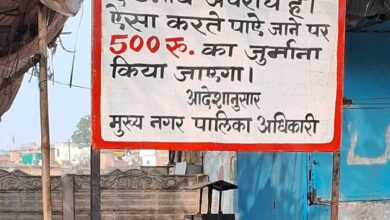 अपराध है।
ऐसा करते पाऐ जाने पर
500 रू. का जुर्माना
किया जाएगा।
आदेशानुसार
मुख्य नगर पालिका अधिकारी